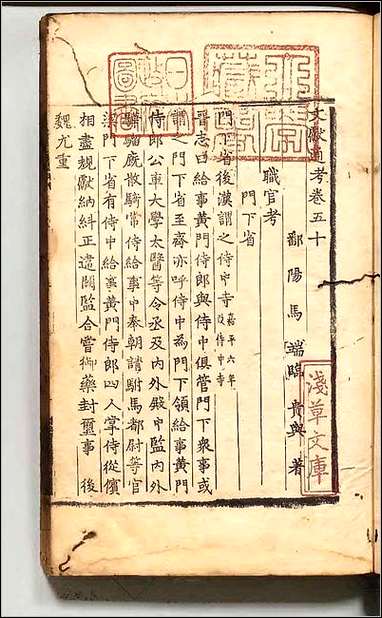 文獻通考卷五十
鄱陽馬端臨貴與著
職官考
門下省
門下省後漢謂之侍中寺嘉平六年改侍中寺
晉志曰給事黃門侍郎與侍中俱管門下衆事或
謂之門下省至齊亦呼侍中為門下領給事黃門
侍郎公車大學太醫等令丞及內外殿中監內外
驊騮廐散騎常侍給事中奉朝請駙馬都尉等官
梁門下省有侍中給事黃門侍郎四人掌侍從儐
相盡規獻納糾正違闕監合嘗御藥封璽事後
魏尤重
淺草文庫